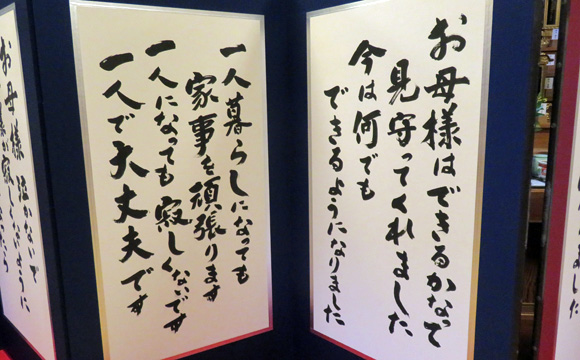 お母様はできるかなって
見守ってくれました
今は何でも
できるようになりました
一人暮らしになっても
家事を頑張ります
一人になっても寂しくないです
一人で大丈夫です
お母様泣かないで